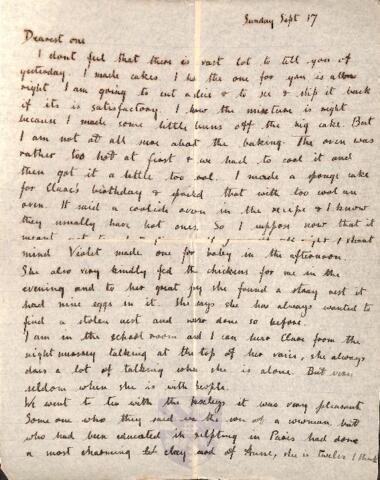 Sunday Sept 17
Dearest one
I dont feel that there is vast lot to tell you of
yesterday. I made cakes. I the one for you is
right I am going to cut a slice & to see & ship it back
if its is satisfactory. I know the mixture is right
because I made some little buns off the big cake. But
I am not at all sure about the baking. The oven was
rather too hot at first & we had to cool it and
then got it a little too cool. I made a sponge cake
for Clare's birthday & spoiled that with too cool an
oven. It said a coolish oven in the recipe & I know
they usually have hot ones. So I suppose now that it
meant
mind Violet made one for baby in the afternoon
She also very kindly fed the chickens for me in the
evening and to her great joy she found a stray nest it
had nine eggs in it. She says she has always wanted to
find a stolen nest and never done so before.
I am in the school room and I can hear Clare from the
night nursery talking at the top of her voice, she always
does a lot of talking when she is alone. But very
seldom when she is with people.
We went to tea with the it was very pleasant
Some one who they said was the son of a but
who had been educated in in Paris had done
a most charming clay of Anne, she is twelve I think